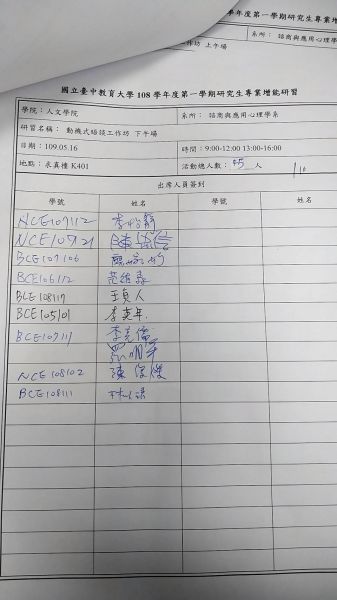 學年度第一學期研究生專業
系所：諮商與應用心理學
坊 上午場
國立臺中教育大學 108 學年度第一學期研究生專業增能研習
學院：人文學院 系所：諮商與應用心理學系
研習名稱：動機式晤談工作坊 下午場
日期：109.05.16 時間：9:00-12:00 13:00-16:00
地點：求真樓 K401 活動總人數： 人
出席人員簽到
學號 姓名 學號 姓名
NCE107112
NCE107121
BCE107106
BCE106112
BCE108117 王貞人
BCE105101 李奕年
BCE107111 李克倫
NCE108102 陳俊傑
BCE108111